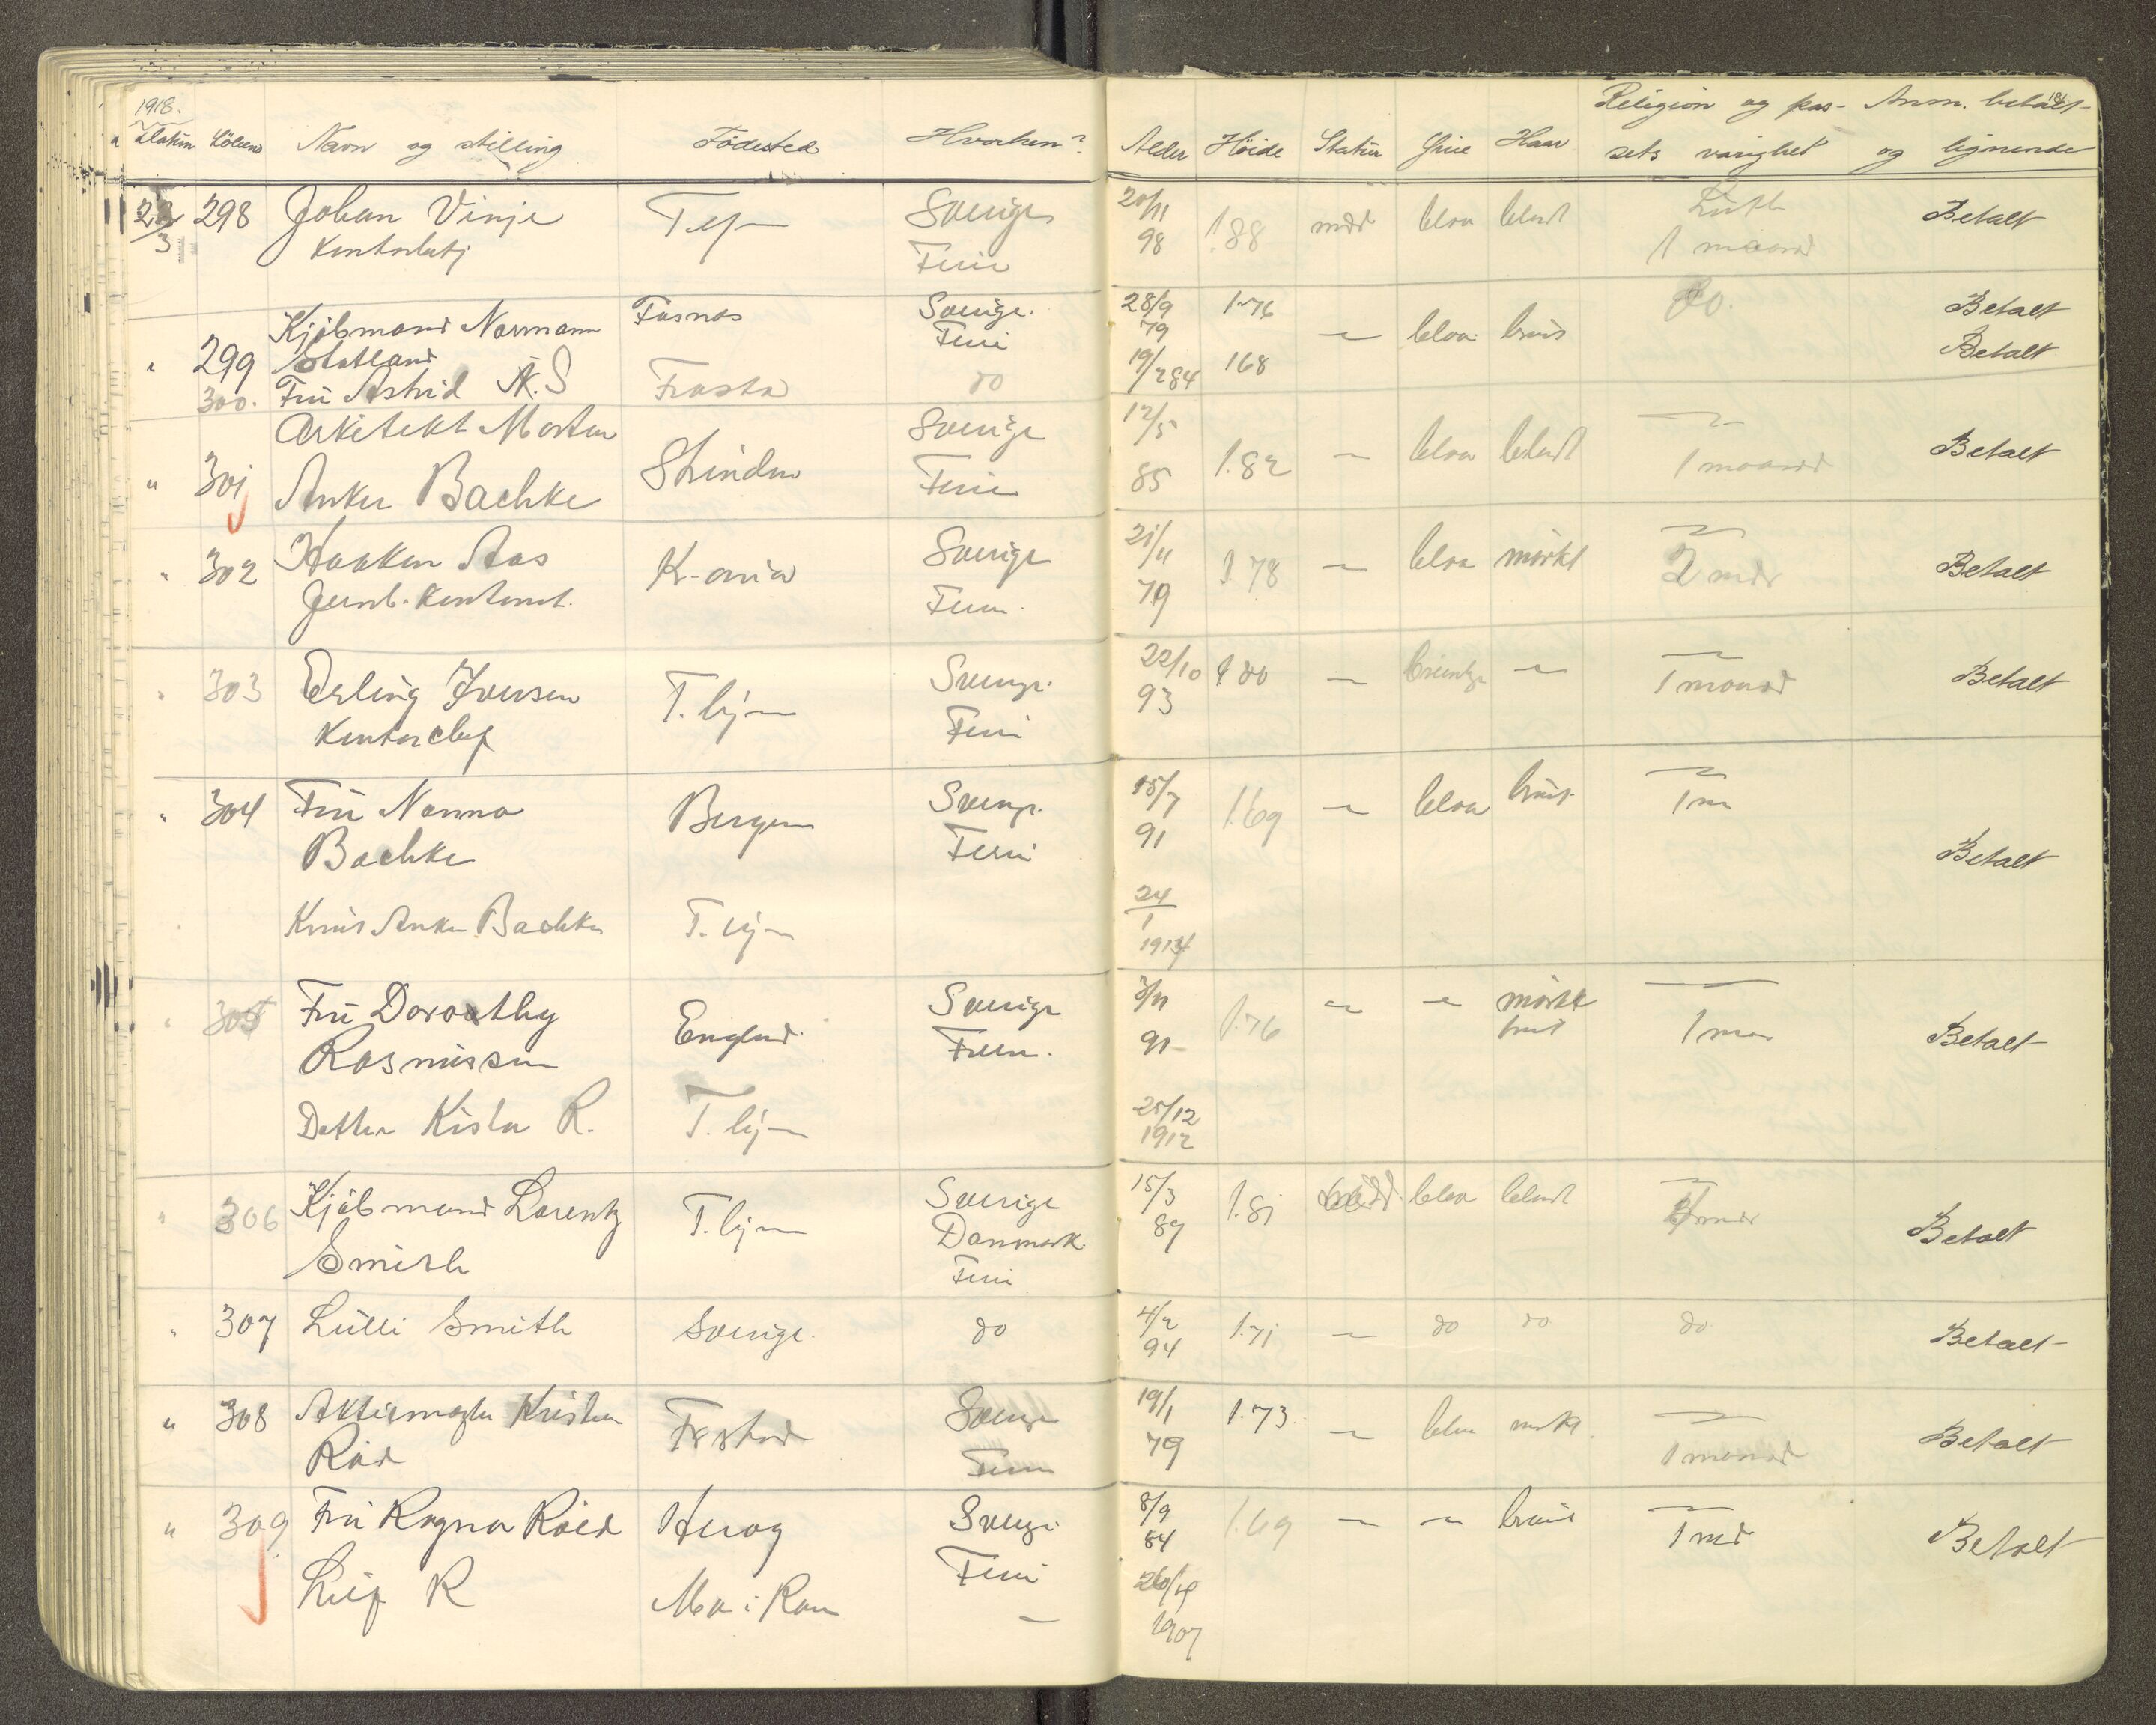 1918.
Datum Löbeno Navn og stilling Födested Hvorhen? Alder Höide Statur Öine Haar Religion og pas- Anm. betalt-
sets varighet og lignende
181
23/3 298 Johan Vinje Sverige 20/11 1.88 midd blaa blondt Luth Betalt
Ferie 98 1 maaned
Kjöbmand Normann Fosnes Sverige. 28/9 1.76 do. Betalt
" 299 Statland Ferie 79 — blaa brunt Betalt
300. Fru Astrid N. S Frosta do 19/2 84 168
Arkitekt Morten Sverige 12/5 —
" 301 Anker Bachke Strinden Ferie 85 1.82 — blaa blondt 1 maaned Betalt
" 302 Haakon Aas K-ania Sverige 21/11 1.78 — blaa mörkt — Betalt
Jernb. Kontorist. Ferie. 79 2 mdr
" 303 Erling Iversen T.hjm Sverige. 22/10 1.80 — — — Betalt
Kontorchef Ferie 93 1 maaned
" 304 Fru Nanna Bergen Sverige. 15/7 1.69 — blaa brunt — Betalt
Bachke Ferie 91 1 m
Knut Anker Bachke T.hjm 24/1
1914
" 305 Fru Dorothy England. Sverige 3/11 1.76 — — mörkt — Betalt
Rasmussen Ferie. 91 brunt 1 mnd
Datter R. T.hjm 25/12
1912
" 306 Kjöbmand Lorentz T.hjm Sverige 15/3 1.81 midd. blaa blondt — Betalt
Smith Danmark. 89 mdr
Ferie
" 307 Lulli Smith Sverige. do 4/2 1.71 — do do do Betalt
94
" 308 Aktiemegler Kristian Fr.stad Sverige 19/1 1.73. — blaa mörkt. — Betalt
Röd Ferie 79 1 maaned
" 309 Fru Ragna Röed Heröy Sverige 8/9 1.69 — — brunt — Betalt
Ferie 84 1 md
Leif R Mo i Rana —
1907